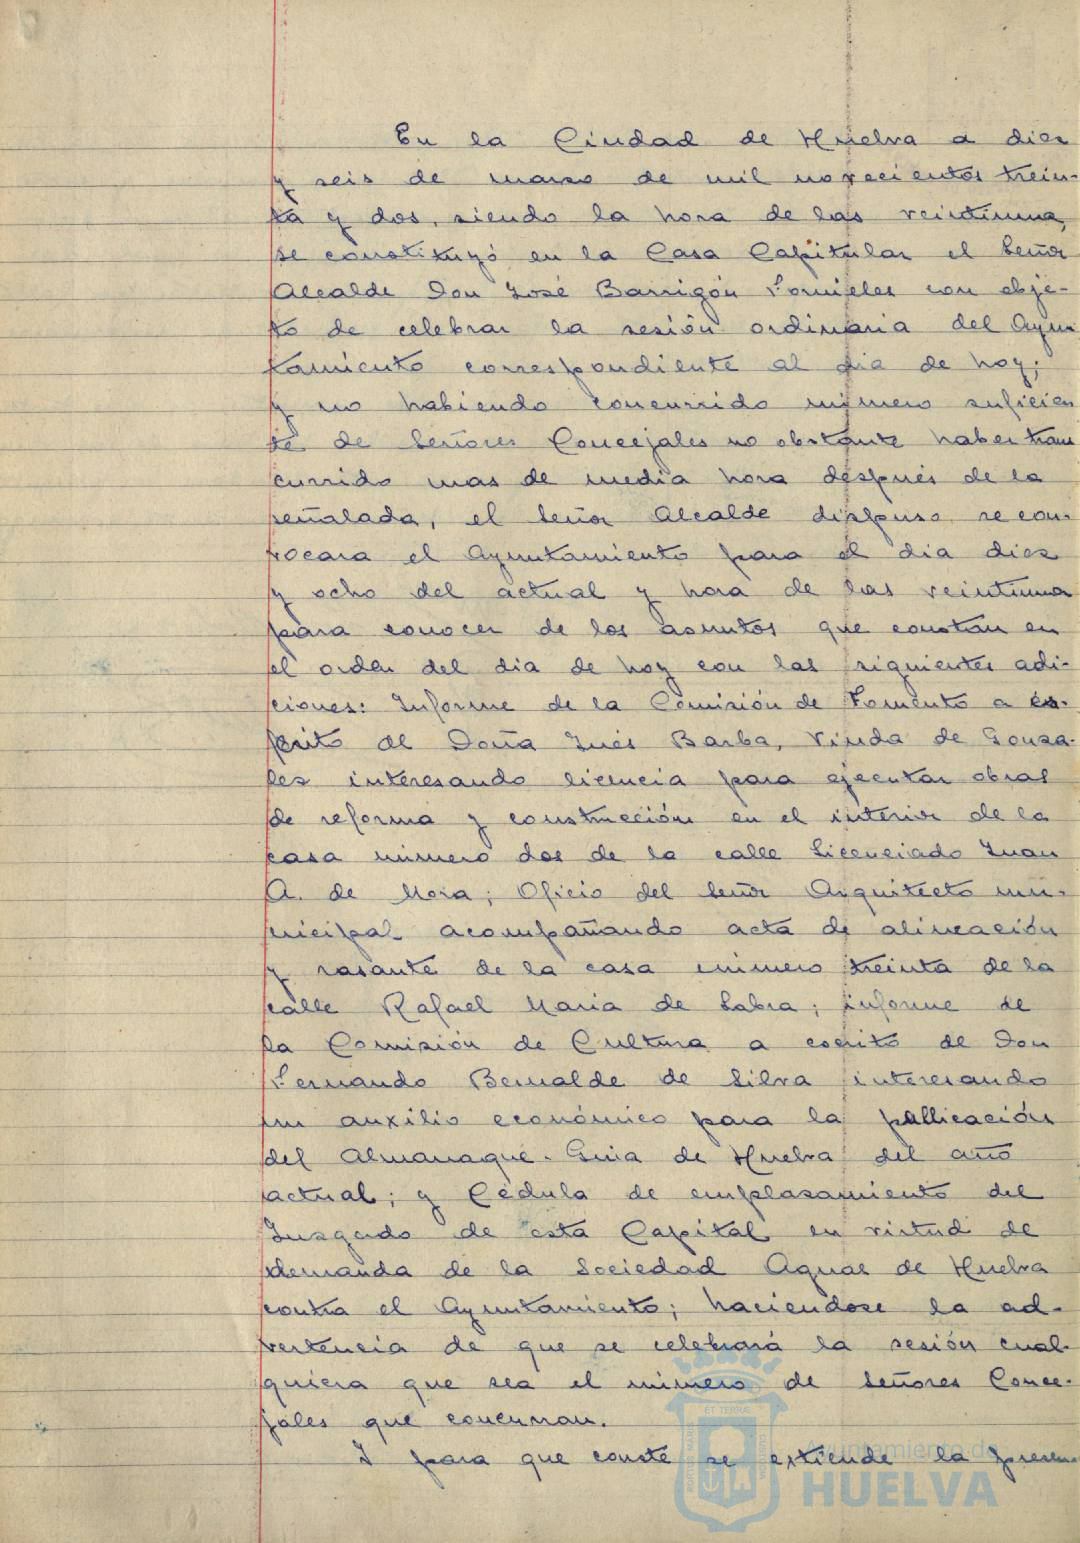 En la Ciudad de Huelva a diez
y seis de marzo de mil novecientos trein-
ta y dos, siendo la hora de las veintiuna,
se constituyó en la Casa Capitular el Señor
Alcalde Don José Barrigón Fornieles con obje-
to de celebrar la sesión ordinaria del Ayun
tamiento correspondiente al dia de hoy;
y no habiendo concurrido número suficien
te de Señores Concejales no obstante haber trans
currido mas de media hora después de la
señalada, el Señor Alcalde dispuso se con-
vocara el Ayuntamiento para el dia diez
y ocho del actual y hora de las veintiuna
para conocer de los asuntos que constan en
el orden del dia de hoy con las siguientes adi-
ciones: Informe de la Comisión de Fomento a es-
crito de Doña Inés Barba, Viuda de Gonza-
lez interesando licencia para ejecutar obras
de reforma y construcción en el interior de la
casa número dos de la calle Licenciado Juan
A. de Mora; Oficio del Señor Arquitecto mu-
nicipal acompañando acta de alineación
y rasante de la casa número treinta de la
calle Rafael Maria de Labra; informe de
la Comisión de Cultura a escrito de Don
Fernando Bernalde de Silva interesando
un auxilio económico para la publicación
del Almanaque-Guia de Huelva del año
actual; y Cédula de emplazamiento del
Juzgado de esta Capital en virtud de
demanda de la Sociedad Aguas de Huelva
contra el Ayuntamiento; haciendose la ad-
vertencia de que se celebrará la sesión cual-
quiera que sea el número de Señores Conce-
jales que concurran.
Y para que conste se extiende la presen-
Ayuntamiento de
HUELVA